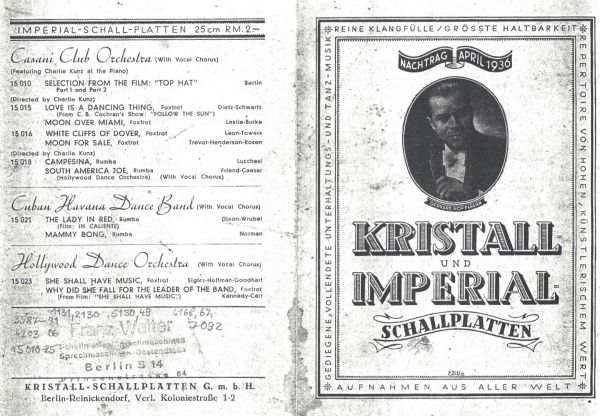 IMPERIAL-SCHALL-PLATTEN 25cm RM.2.—
Casani Club Orchestra (With Vocal Chorus)
(Featuring Charlie Kunz at the Piano)
15 010 SELECTION FROM THE FILM: "TOP HAT" Berlin
Part 1 and Part 2
(Directed by Charlie Kunz)
15 015 LOVE IS A DANCING THING, Foxtrot Dietz-Schwartz
(From C. B. Cochran's Show: "FOLLOW THE SUN")
MOON OVER MIAMI, Foxtrot Leslie-Burke
15 016 WHITE CLIFFS OF DOVER, Foxtrot Leon-Towers
MOON FOR SALE, Foxtrot Trevor-Henderson-Rosen
(Directed by Charlie Kunz)
15 018 CAMPESINA, Rumba Lucchesi
SOUTH AMERICA JOE, Rumba Friend-Caesar
(Hollywood Dance Orchestra) (With Vocal Chorus)
Cuban Havana Dance Band (With Vocal Chorus)
15 021 THE LADY IN RED, Rumba Dixon-Wrubel
(Film: IN CALIENTE)
MAMMY BONG, Rumba Norman
Hollywood Dance Orchestra (With Vocal Chorus)
15 023 SHE SHALL HAVE MUSIC, Foxtrot Sigler-Hoffman-Goodhart
WHY DID SHE FALL FOR THE LEADER OF THE BAND, Foxtrot
(From Film: "SHE SHALL HAVE MUSIC") Kennedy-Carr
2130
Walter
Sprechmaschinen
Berlin S 14
64
KRISTALL-SCHALLPLATTEN G. m. b. H.
Berlin-Reinickendorf, Verl. Koloniestraße 1-2
REINE KLANGFÜLLE/GRÖSSTE HALTBARKEIT
REPERTOIRE VON HOHEN, KÜNSTLERISCHEM WERT
AUFNAHMEN AUS ALLER WELT
GEDIEGENE, VOLLENDETE UNTERHALTUNGS- UND TANZ-MUSIK
NACHTRAG APRIL 1936
GERHARD HOFFMANN
KRISTALL
UND
IMPERIAL
SCHALLPLATTEN